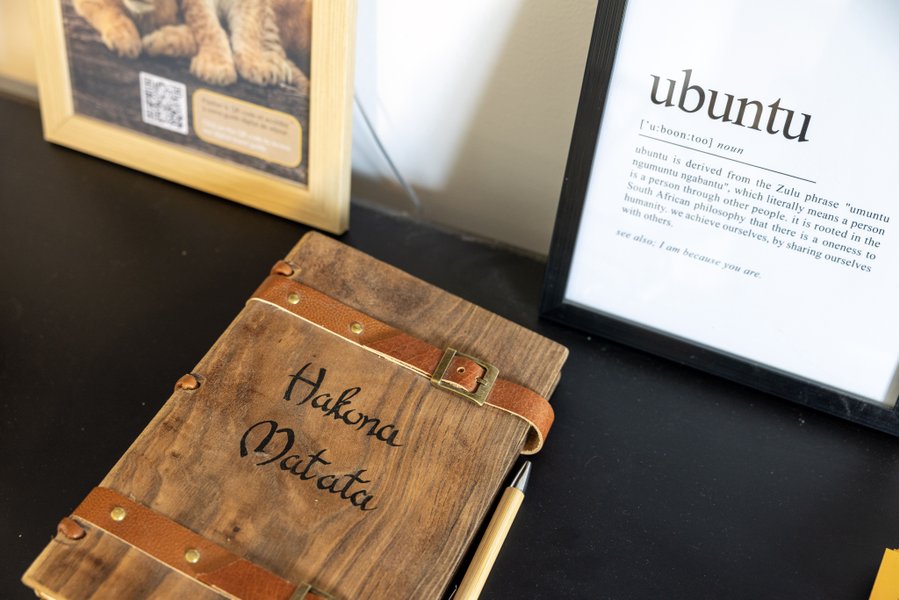 ubuntu
['u:boon:too] noun
ubuntu is derived from the Zulu phrase "umuntu
ngumuntu ngabantu", which literally means a person
is a person through other people. it is rooted in the
South African philosophy that there is a oneness to
humanity. we achieve ourselves, by sharing ourselves
with others.
see also; I am because you are.
Hakuna
Matata